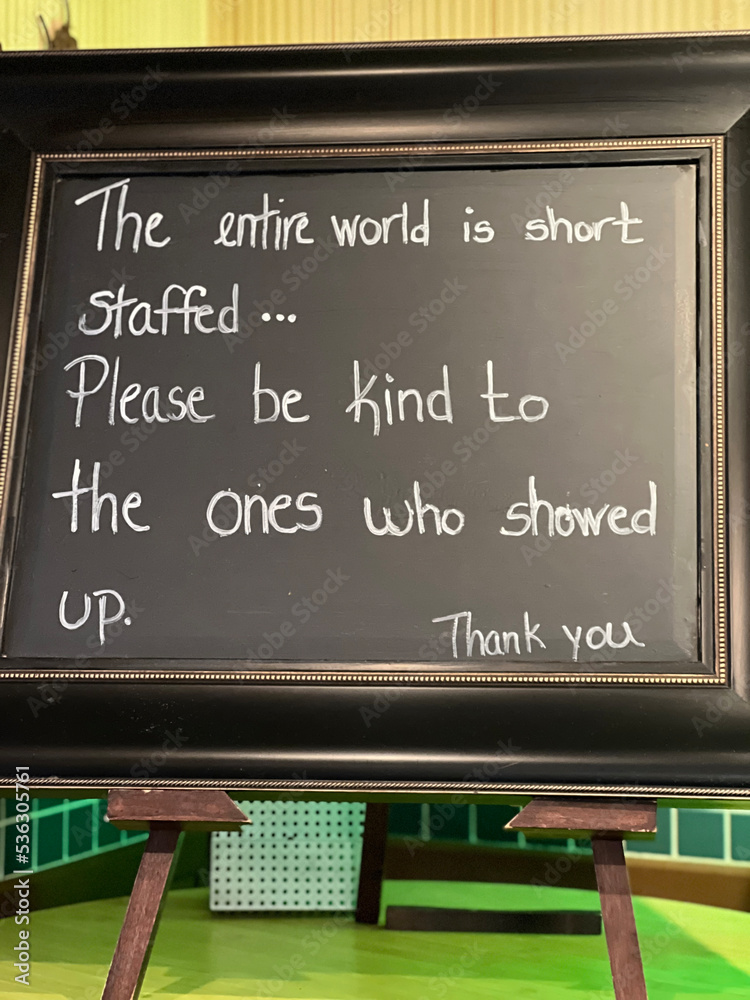 The entire world is short
staffed...
Please be kind to
the ones who showed
up.
Thank you
Adobe Stock | #536305761